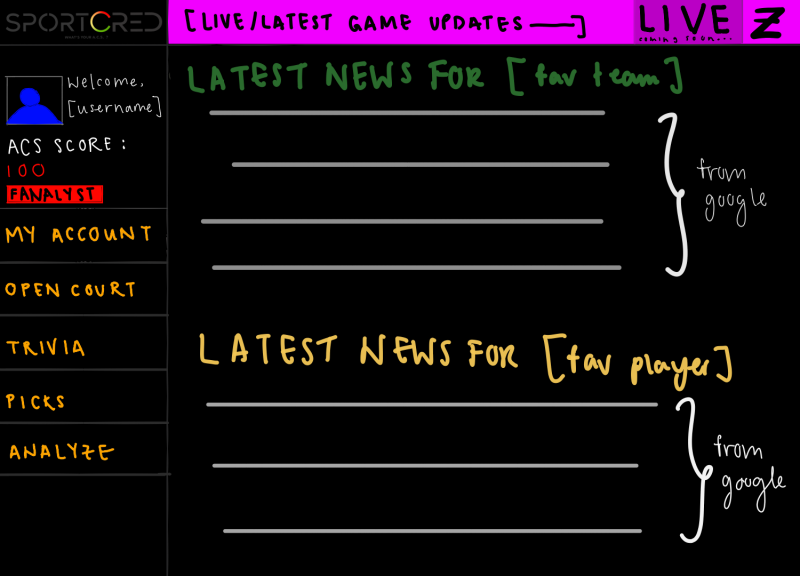 SPORTCRED
[LIVE/LATEST GAME UPDATES ——]
LIVE
coming soon...
Z
Welcome,
[username]
ACS SCORE :
100
FANALYST
MY ACCOUNT
OPEN COURT
TRIVIA
PICKS
ANALYZE
LATEST NEWS FOR [fav team]
from
google
LATEST NEWS FOR [fav player]
from
google